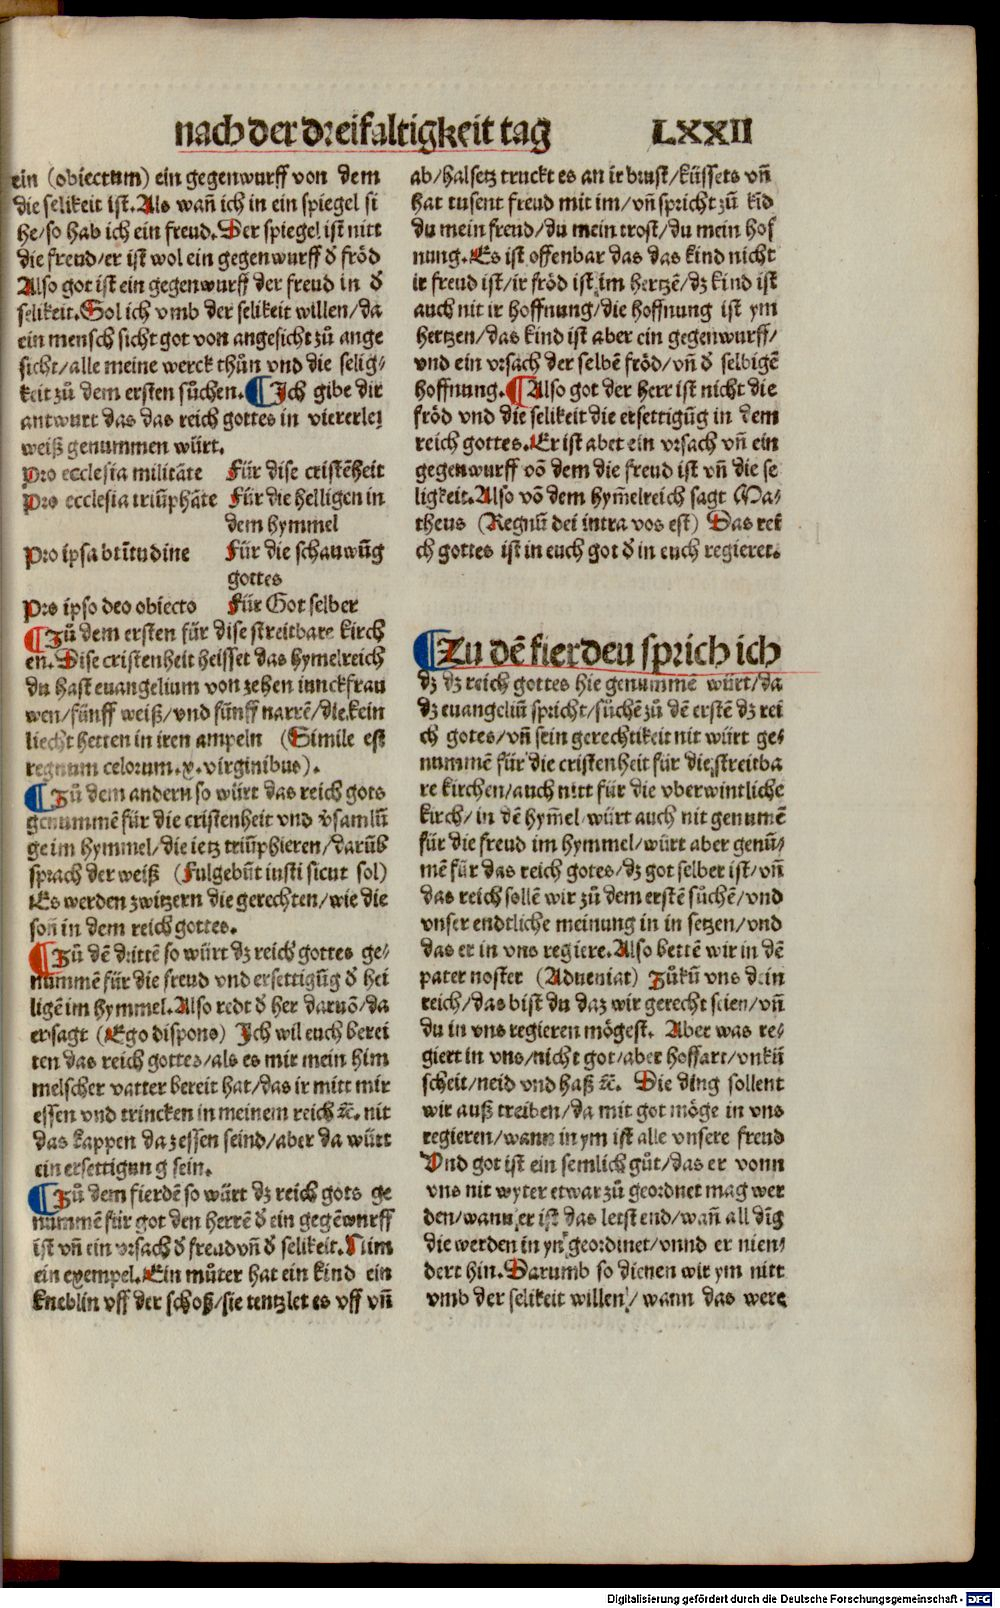 nach der dreifaltigkeit tag LXXII
ein (obiectum) ein gegenwurff von dem
die selikeit ist. Als wañ ich in ein spiegel si
he/so hab ich ein freud. Der spiegel ist nitt
die freud/er ist wol ein gegenwurff d̕ fröd
Also got ist ein gegenwurff der freud in d̕
selikeit. Sol ich vmb der selikeit willen/da
ein mensch sicht got von angesicht zů ange
sicht/alle meine werck thůn vnd die selig⸗
keit zů dem ersten sůchen. ¶ Ich gibe dir
antwurt das das reich gottes in viererlei
weiß genummen würt.
Pro ecclesia militāte Für dise cristēheit
Pro ecclesia triūphāte Für die helligen in
dem hymmel
Pro ipsa btītudine Für die schauwūg
gottes
Pro ipso deo obiecto Für Got selber
¶ Zů dem ersten für dise streitbare kirch
en. Dise cristenheit heisset das hymelreich
du hast euangelium von zehen iunckfrau
wen/fünff weiß/vnd fünff narrē/die kein
liecht hetten in iren ampeln (Simile est
regnum celorum.x.virginibus).
¶ Zů dem andern so würt das reich gots
genummē für die cristenheit vnd v̕samlū
ge im hymmel/die ietz triūphieren/darūb
sprach der weiß (Fulgebūt iusti sicut sol)
Es werden zwitzern die gerechten/wie die
soñ in dem reich gottes.
¶ Zů dē drittē so würt dz reich gottes ge⸗
nummē für die freud vnd ersettigūg d̕ hei
ligē im hymmel. Also redt d̕ her daruō/da
er sagt (Ego dispono) Ich wil euch berei
ten das reich gottes/als es mir mein him
melscher vatter bereit hat/das ir mitt mir
essen vnd trincken in meinem reich ⁊c. nit
das kappen da zessen seind/aber da würt
ein ersettigung sein.
¶ Zů dem fierdē so würt dz reich gots ge
nummē für got den herrē d̕ ein gegēwurff
ist vñ ein vrsach d̕ freud vñ d̕ selikeit. Nim
ein exempel. Ein můter hat ein kind ein
kneblin vff der schoß/sie tentzlet es vff vñ
ab/halsetz truckt es an ir brust/küssets vñ
hat tusent freud mit im/vñ spricht zů kīd
du mein freud/du mein trost/du mein hof
nung. Es ist offenbar das das kind nicht
ir freud ist/ir fröd ist im hertzē/dz kind ist
auch nit ir hoffnung/die hoffnung ist ym
hertzen/das kind ist aber ein gegenwurff/
vnd ein vrsach der selbē fröd/vñ d̕ selbigē
hoffnung. ¶ Also got der herr ist nicht die
fröd vnd die selikeit die ersettigūg in dem
reich gottes. Er ist aber ein vrsach vñ ein
gegenwurff vō dem die freud ist vñ die se
ligkeit. Also vō dem hym̄elreich sagt Ma⸗
theus (Regnū dei intra vos est) Das rei
ch gottes ist in euch got d̕ in euch regieret.
¶ Zu dē fierden sprich ich
dz dz reich gottes hie genummē würt/da
dz euangeliū spricht/sůchē zů dē erstē dz rei
ch gotes/vñ sein gerechtikeit nit würt ge⸗
nummē für die cristenheit für die streitba
re kirchen/auch nitt für die vberwintliche
kirch/in dē hym̄el würt auch nit genumē
für die freud im hymmel/würt aber genū⸗
mē für das reich gotes/dz got selber ist/vñ
das reich sollē wir zů dem erstē sůchē/vnd
vnser endtliche meinung in in setzen/vnd
das er in vns regiere. Also bettē wir in dē
pater noster (Adueniat) Zůkū vns dein
reich/das bist du daz wir gerecht seien/vñ
du in vns regieren mögest. Aber was re⸗
giert in vns/nicht got/aber hoffart/vnkū
scheit/neid vnd haß ⁊c. Die ding sollent
wir auß treiben/da mit got möge in vns
regieren/wann in ym ist alle vnsere freud
Vnd got ist ein semlich gůt/das er vonn
vns nit wyter etwar zů geordnet mag wer
den/wann er ist das letst end/wañ all dīg
die werden in yn geordinet/vnnd er nien⸗
dert hin. Darumb so dienen wir ym nitt
vmb der selikeit willen/ wann das were
Digitalisierung gefördert durch die Deutsche Forschungsgemeinschaft - DFG